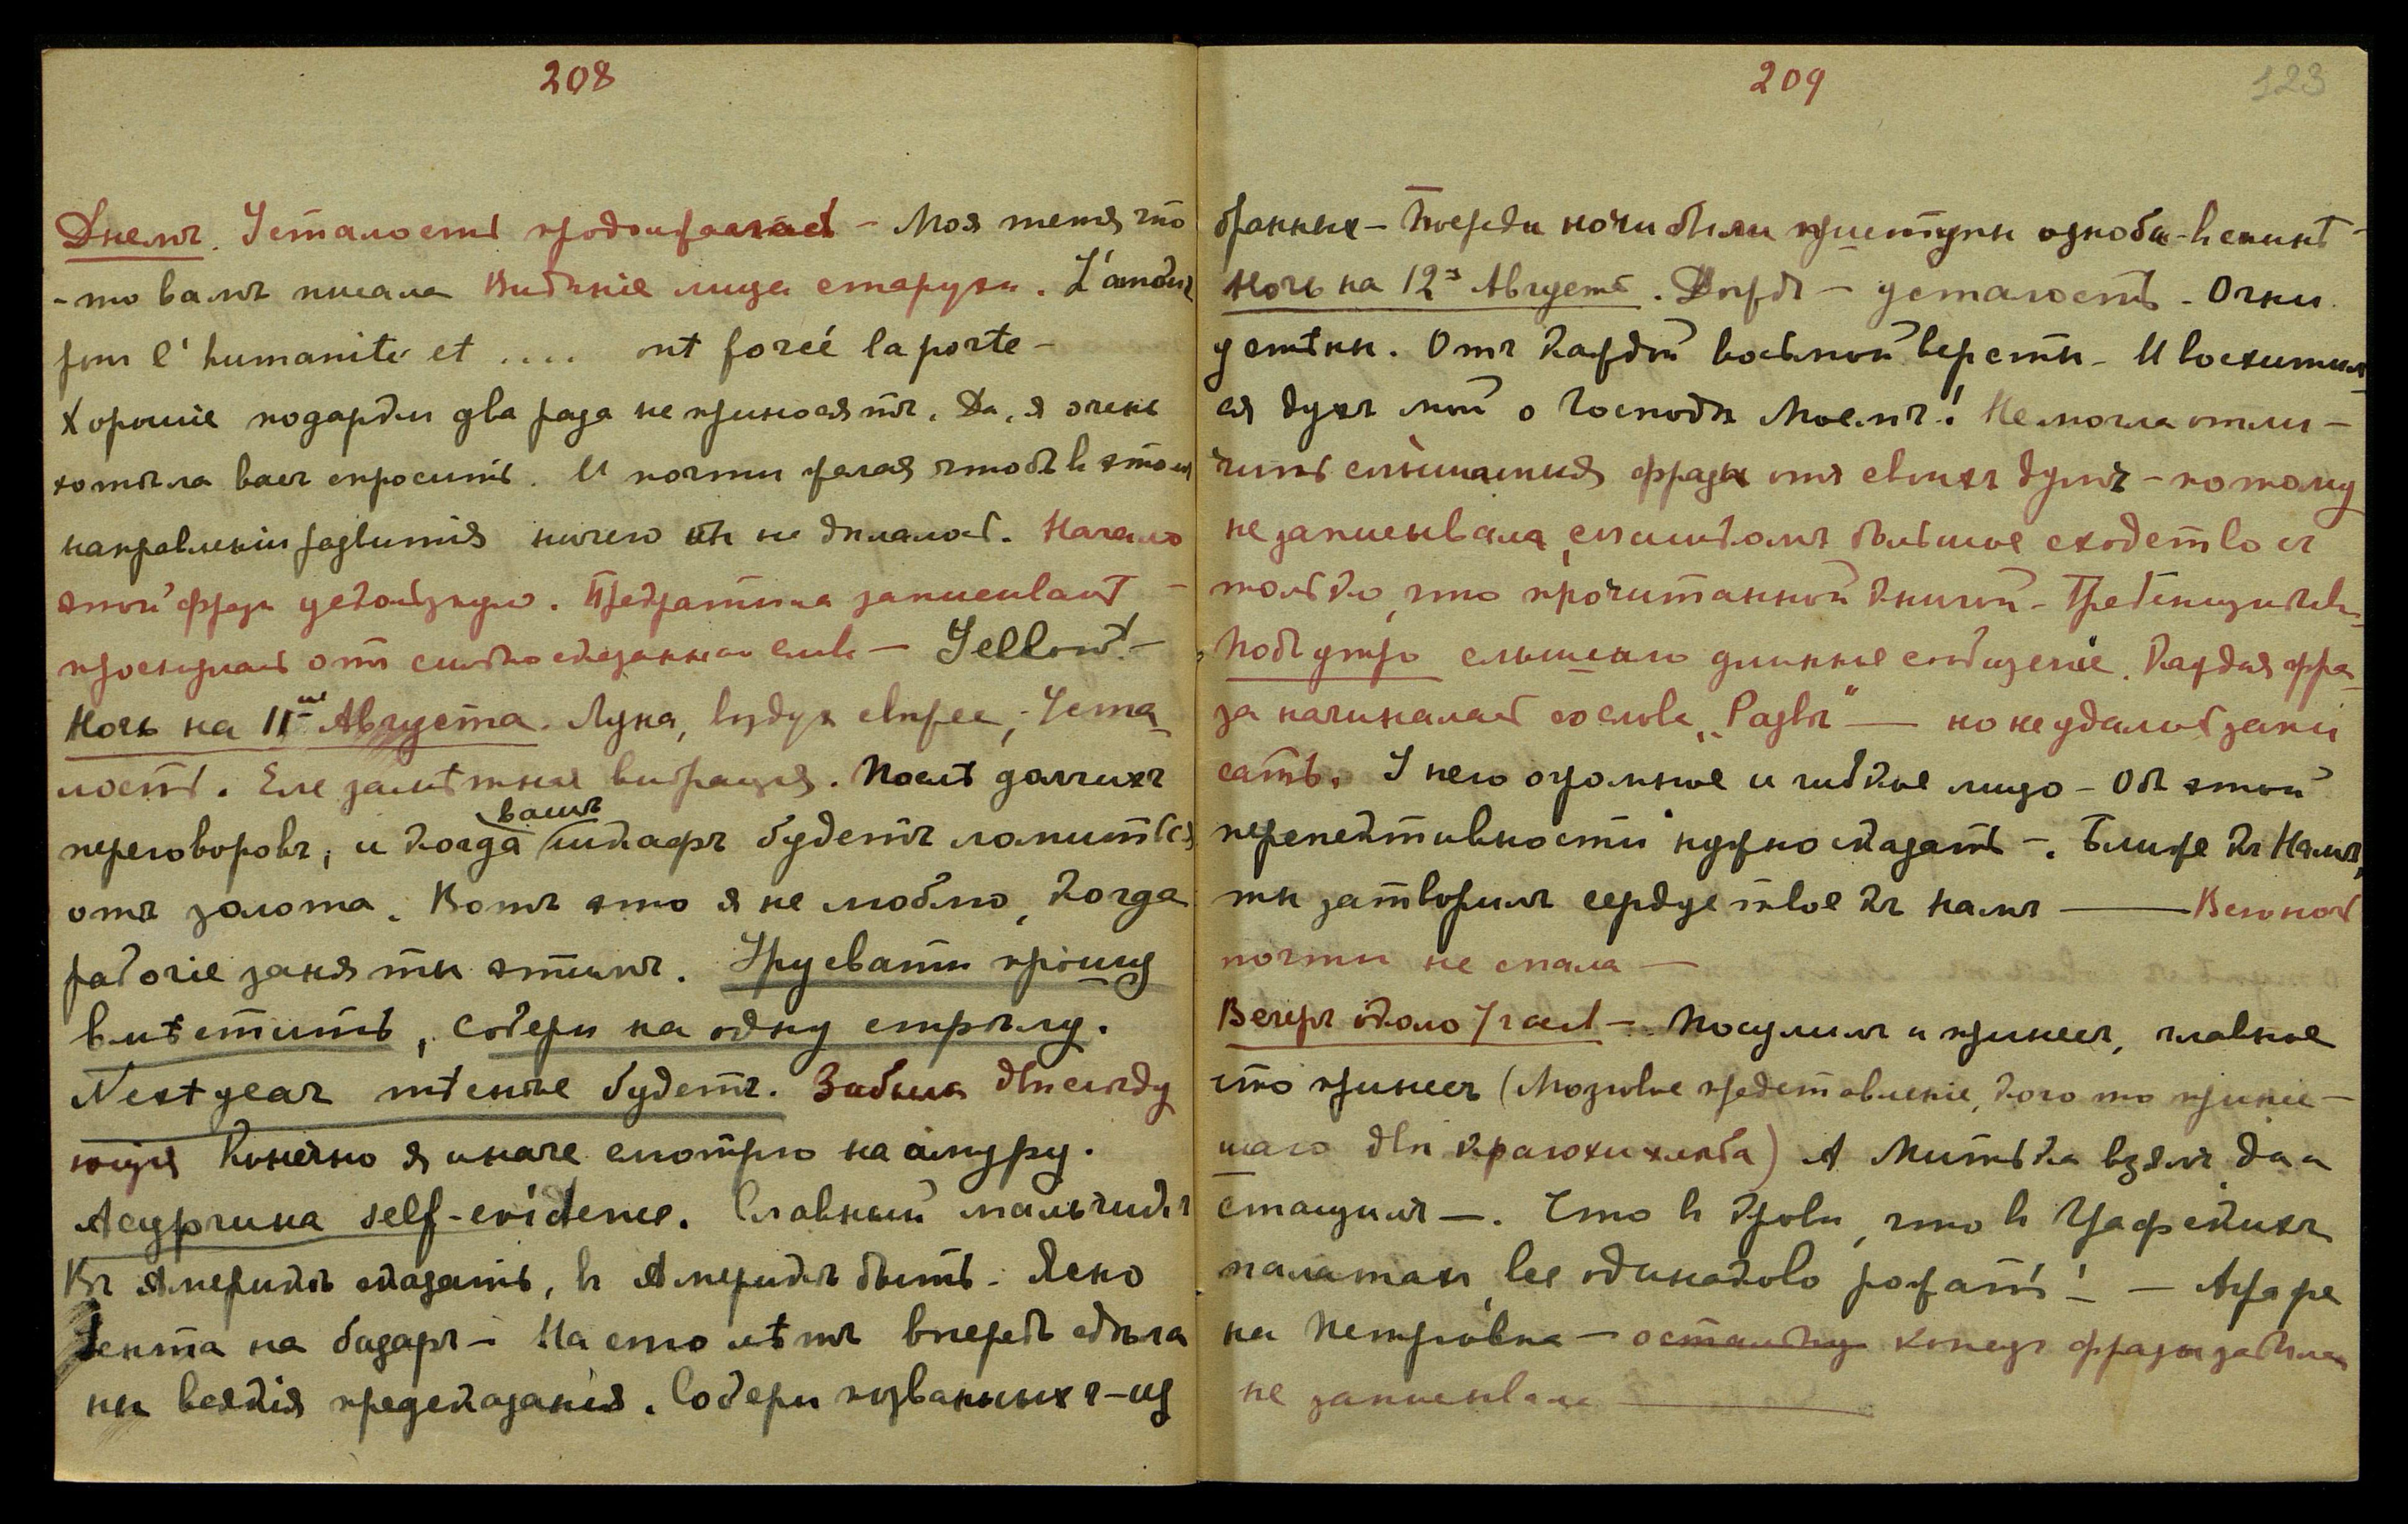 208
Днемъ. Усталость продолжалась – Моя тетя что
-то вамъ писала Видѣніе лица старухи. L'amour
pour l'humanité et .... ont forcé la porte –
Хорошіе подарки два раза не приносятъ. Да, я очень
хотѣла васъ спросить. И почти желая чтобъ въ этомъ
направленіи развитія ничего не дѣлалось. Начало
этой фразы ускользнуло. Предпатина записываю –
проснулась отъ сказанныхъ словъ – Yellow! –
Ночь на 11ое Августа. Луна, воздухъ свѣжее, Уста-
лость. Еле замѣтная вибрація. Послѣ долгихъ
переговоровъ, и когда вашъ шкафъ будетъ ломиться
отъ золота. Вотъ это я не люблю, когда
рабочіе заняты этимъ. Урусвати прошу
вмѣстить, собери на одну стрѣлу.
Next year тѣснѣе будетъ. Забыла двѣ слѣду
ющія Конечно я иначе смотрю на амуру.
Асургина self-evidence. Славный мальчикъ
Къ Америкѣ сказать, въ Америкѣ быть. Ясно
лента на базарѣ – На сто лѣтъ впередъ сдѣла
ны всякія предсказанія. Собери призванныхъ-из
209
123
бранныхъ – Посреди ночи были приступы озноба въ спинѣ –
Ночь на 12ое Августа. Дождь – усталость – Огни.
устѣны. Отъ каждой восьмой версты – И восхитил
ся духъ мой о Господѣ Моемъ! Не могла отли –
чить слышанныя фразы отъ своихъ думъ – потому
не записывала, слишкомъ большое сходство съ
только что прочитанной книгой –
Подъ утро слышано длинное сообщеніе. Каждая фра-
за начиналась со слова „Развѣ" — но не удалось запи
сать. У него огромное и гибкое лицо – Объ этой
перспективности нужно сказать –. Ближе къ Намъ,
ты затворилъ сердце твое къ намъ —— Всю ночь
почти не спала —
Вечеръ около 7 час –. Посулилъ и принесъ, главное
что принесъ (Мозговое представленіе, кого то принес –
шаго двѣ краюхи хлѣба) А Митька взялъ да и
стащилъ –. Что въ крови, что въ Графскихъ
палатахъ, все одинаково рожать! – Аграфе
на Петровна – конецъ фразы забыла
не записывала ——